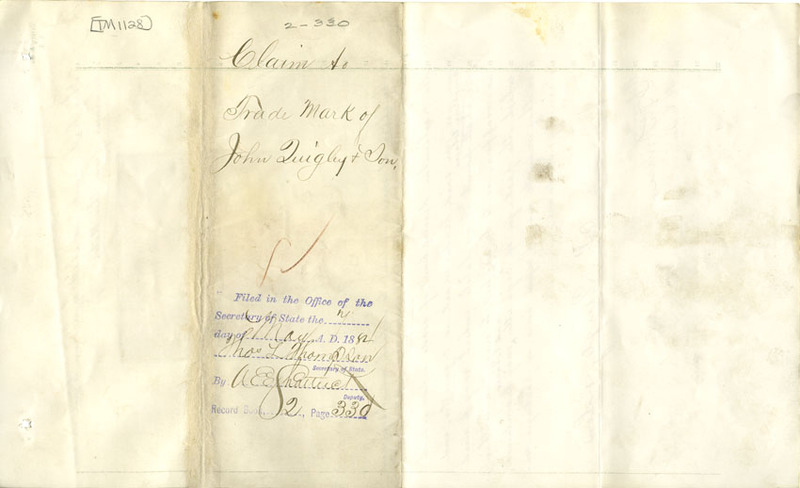 [TM1128]
2-330
Claim to
Trade Mark of
John Quigley & Son,
Filed in the Office of the
Secretary of State the
day of May A.D. 188
Thos L. Thompson
Secretary of State.
By A. E. Shattuck
Deputy.
Record Book, 2, Page 330